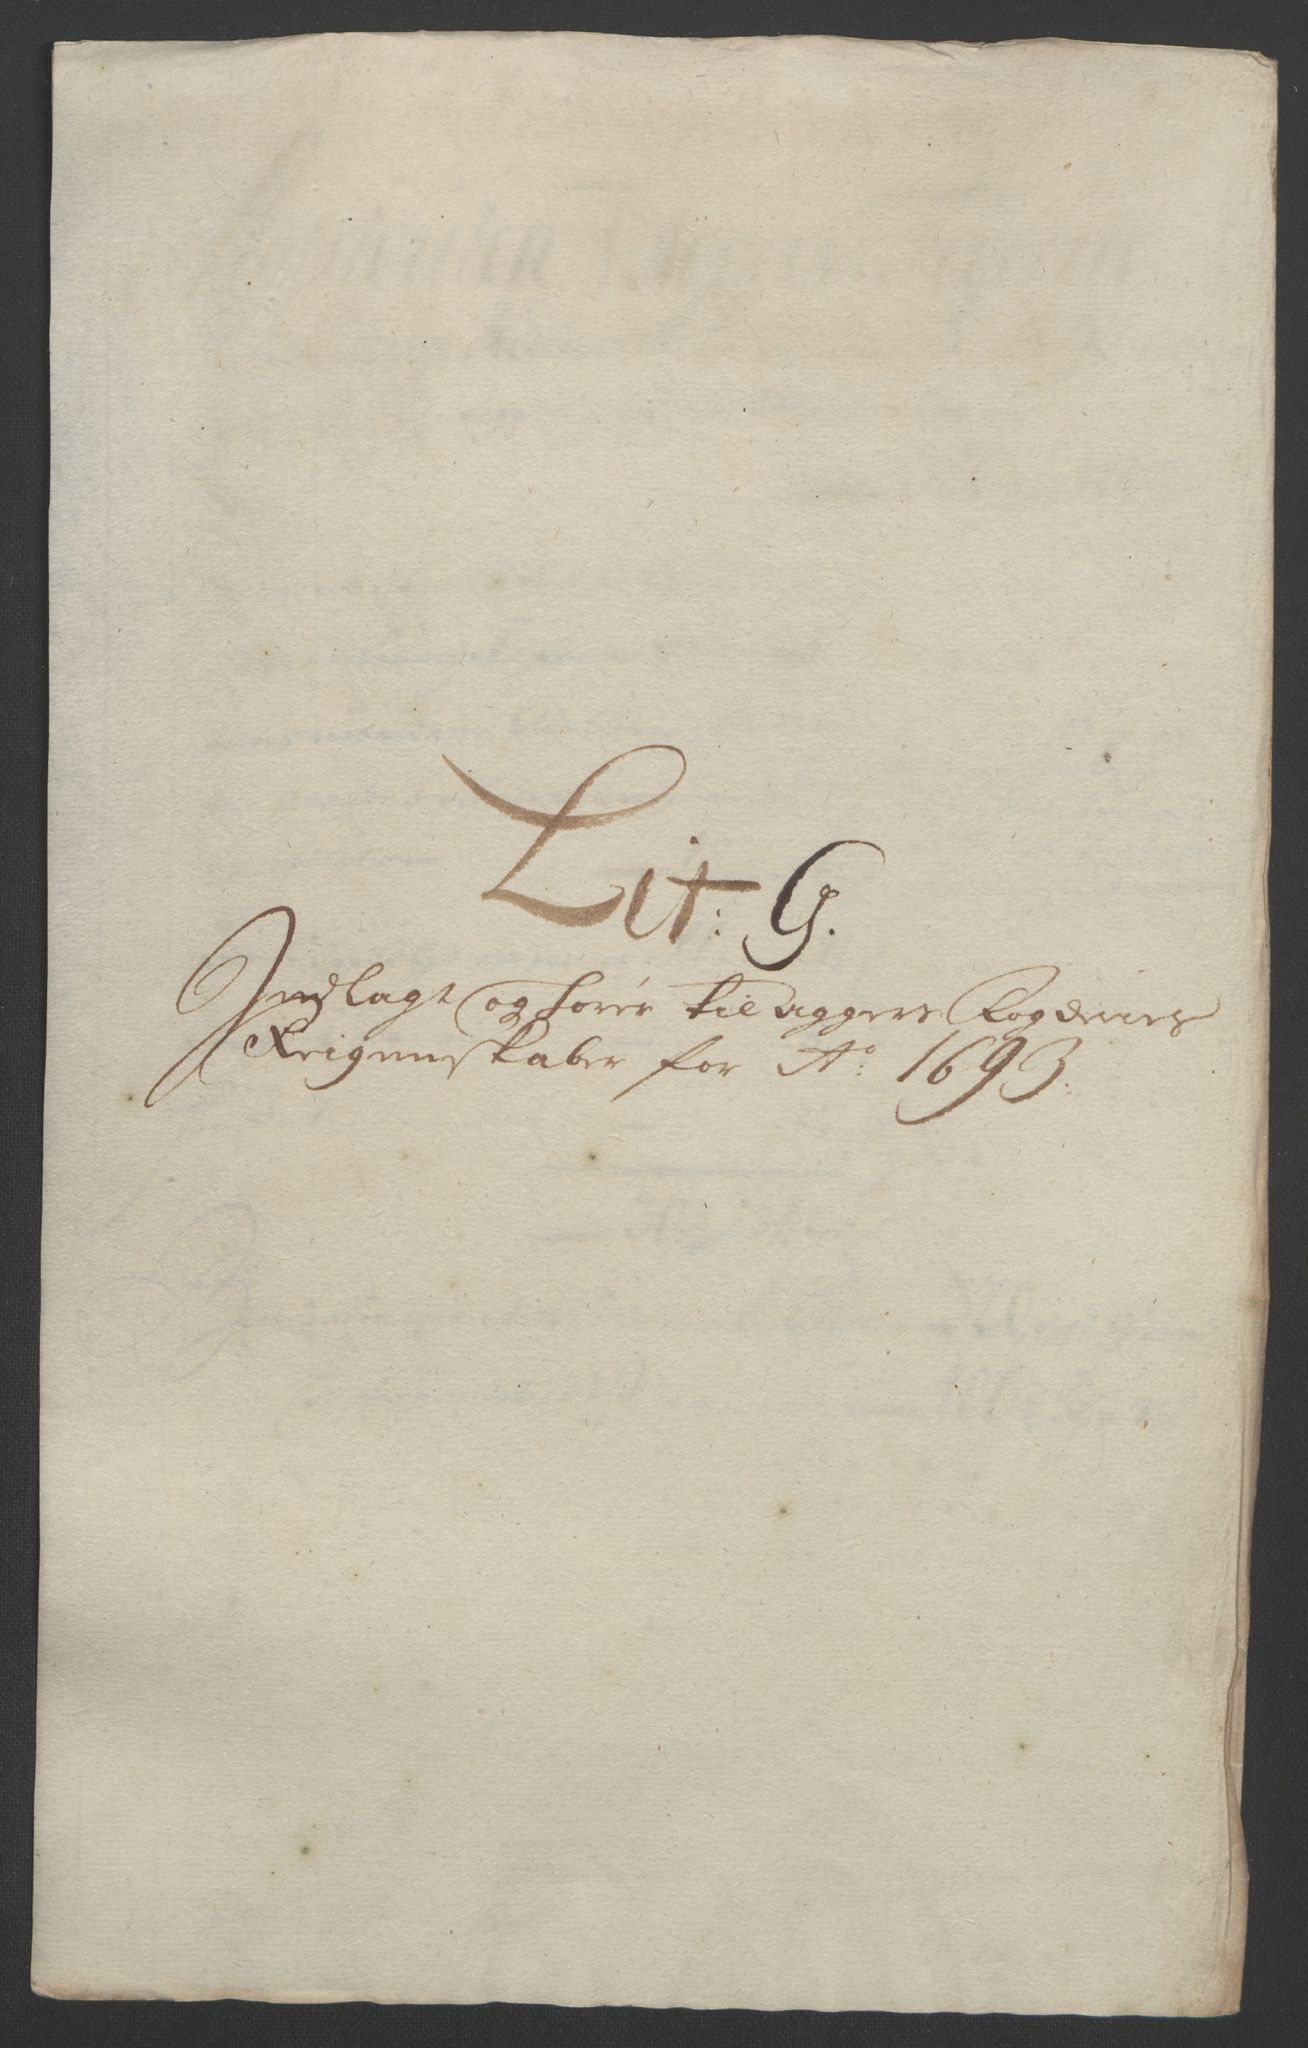 Lit: G.
Indlagt og hører til Aggers Fogderies
Reigenskaber for Ao: 1693.